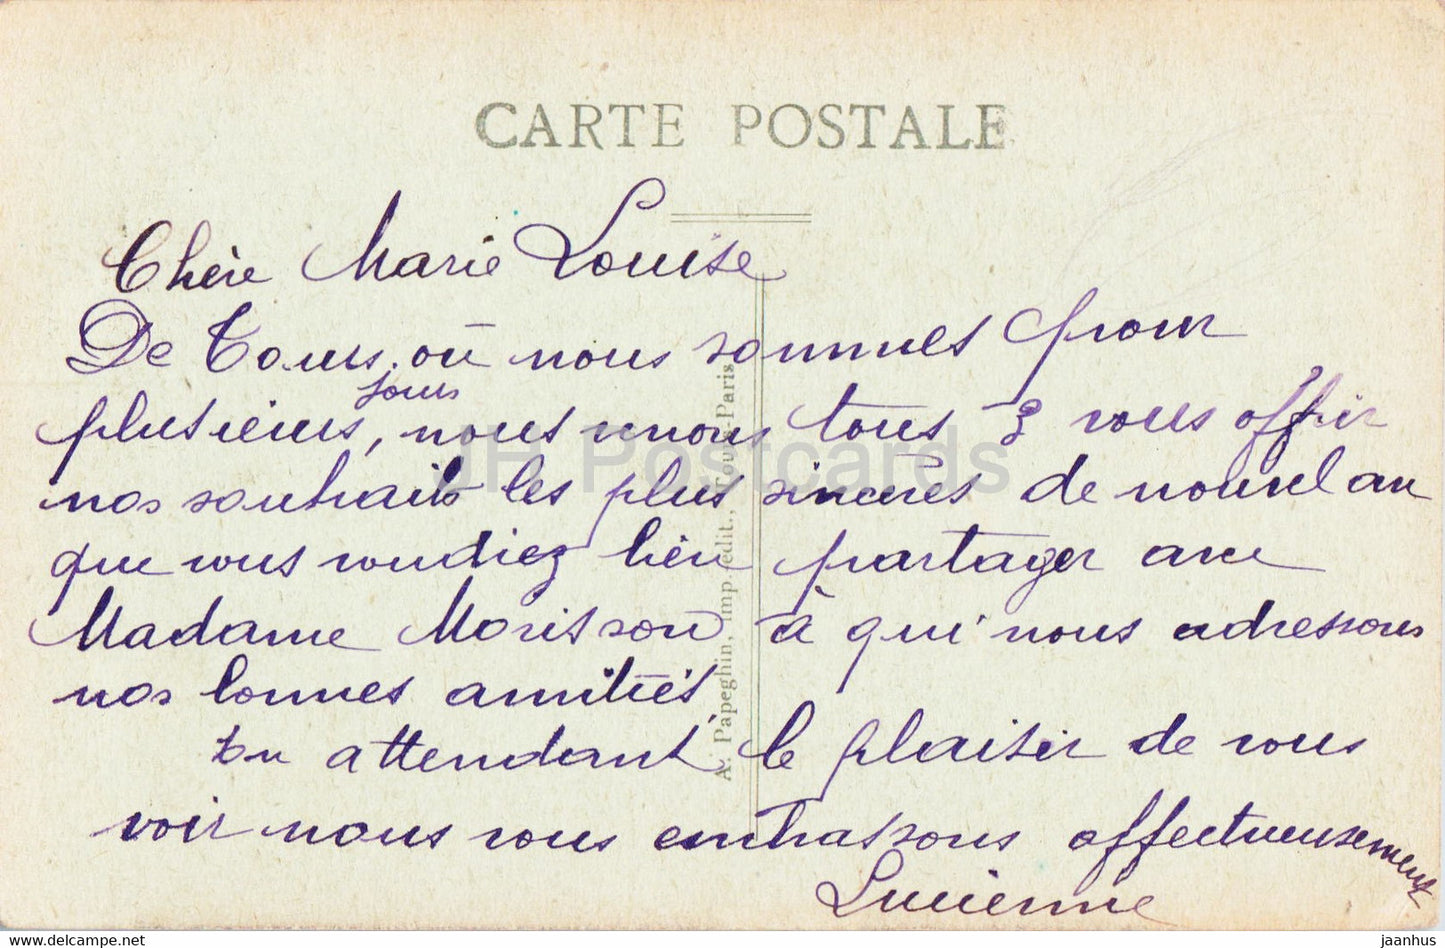 CARTE POSTALE
Chère Marie Louise
De Tours, où nous sommes pour
plusieurs jours, nous venons tous 3 vous offrir
nos souhaits les plus sincères de nouvel an
que vous voudiez bien partager avec
Madame Morisson à qui nous adressons
nos bonnes amitiés,
En attendant le plaisir de vous
voir nous vous embrassons affectueusement
Lucienne
A. Papeghin, imp. édit., Tours Paris
JH Postcards
www.hippostcard.com
jaanhus